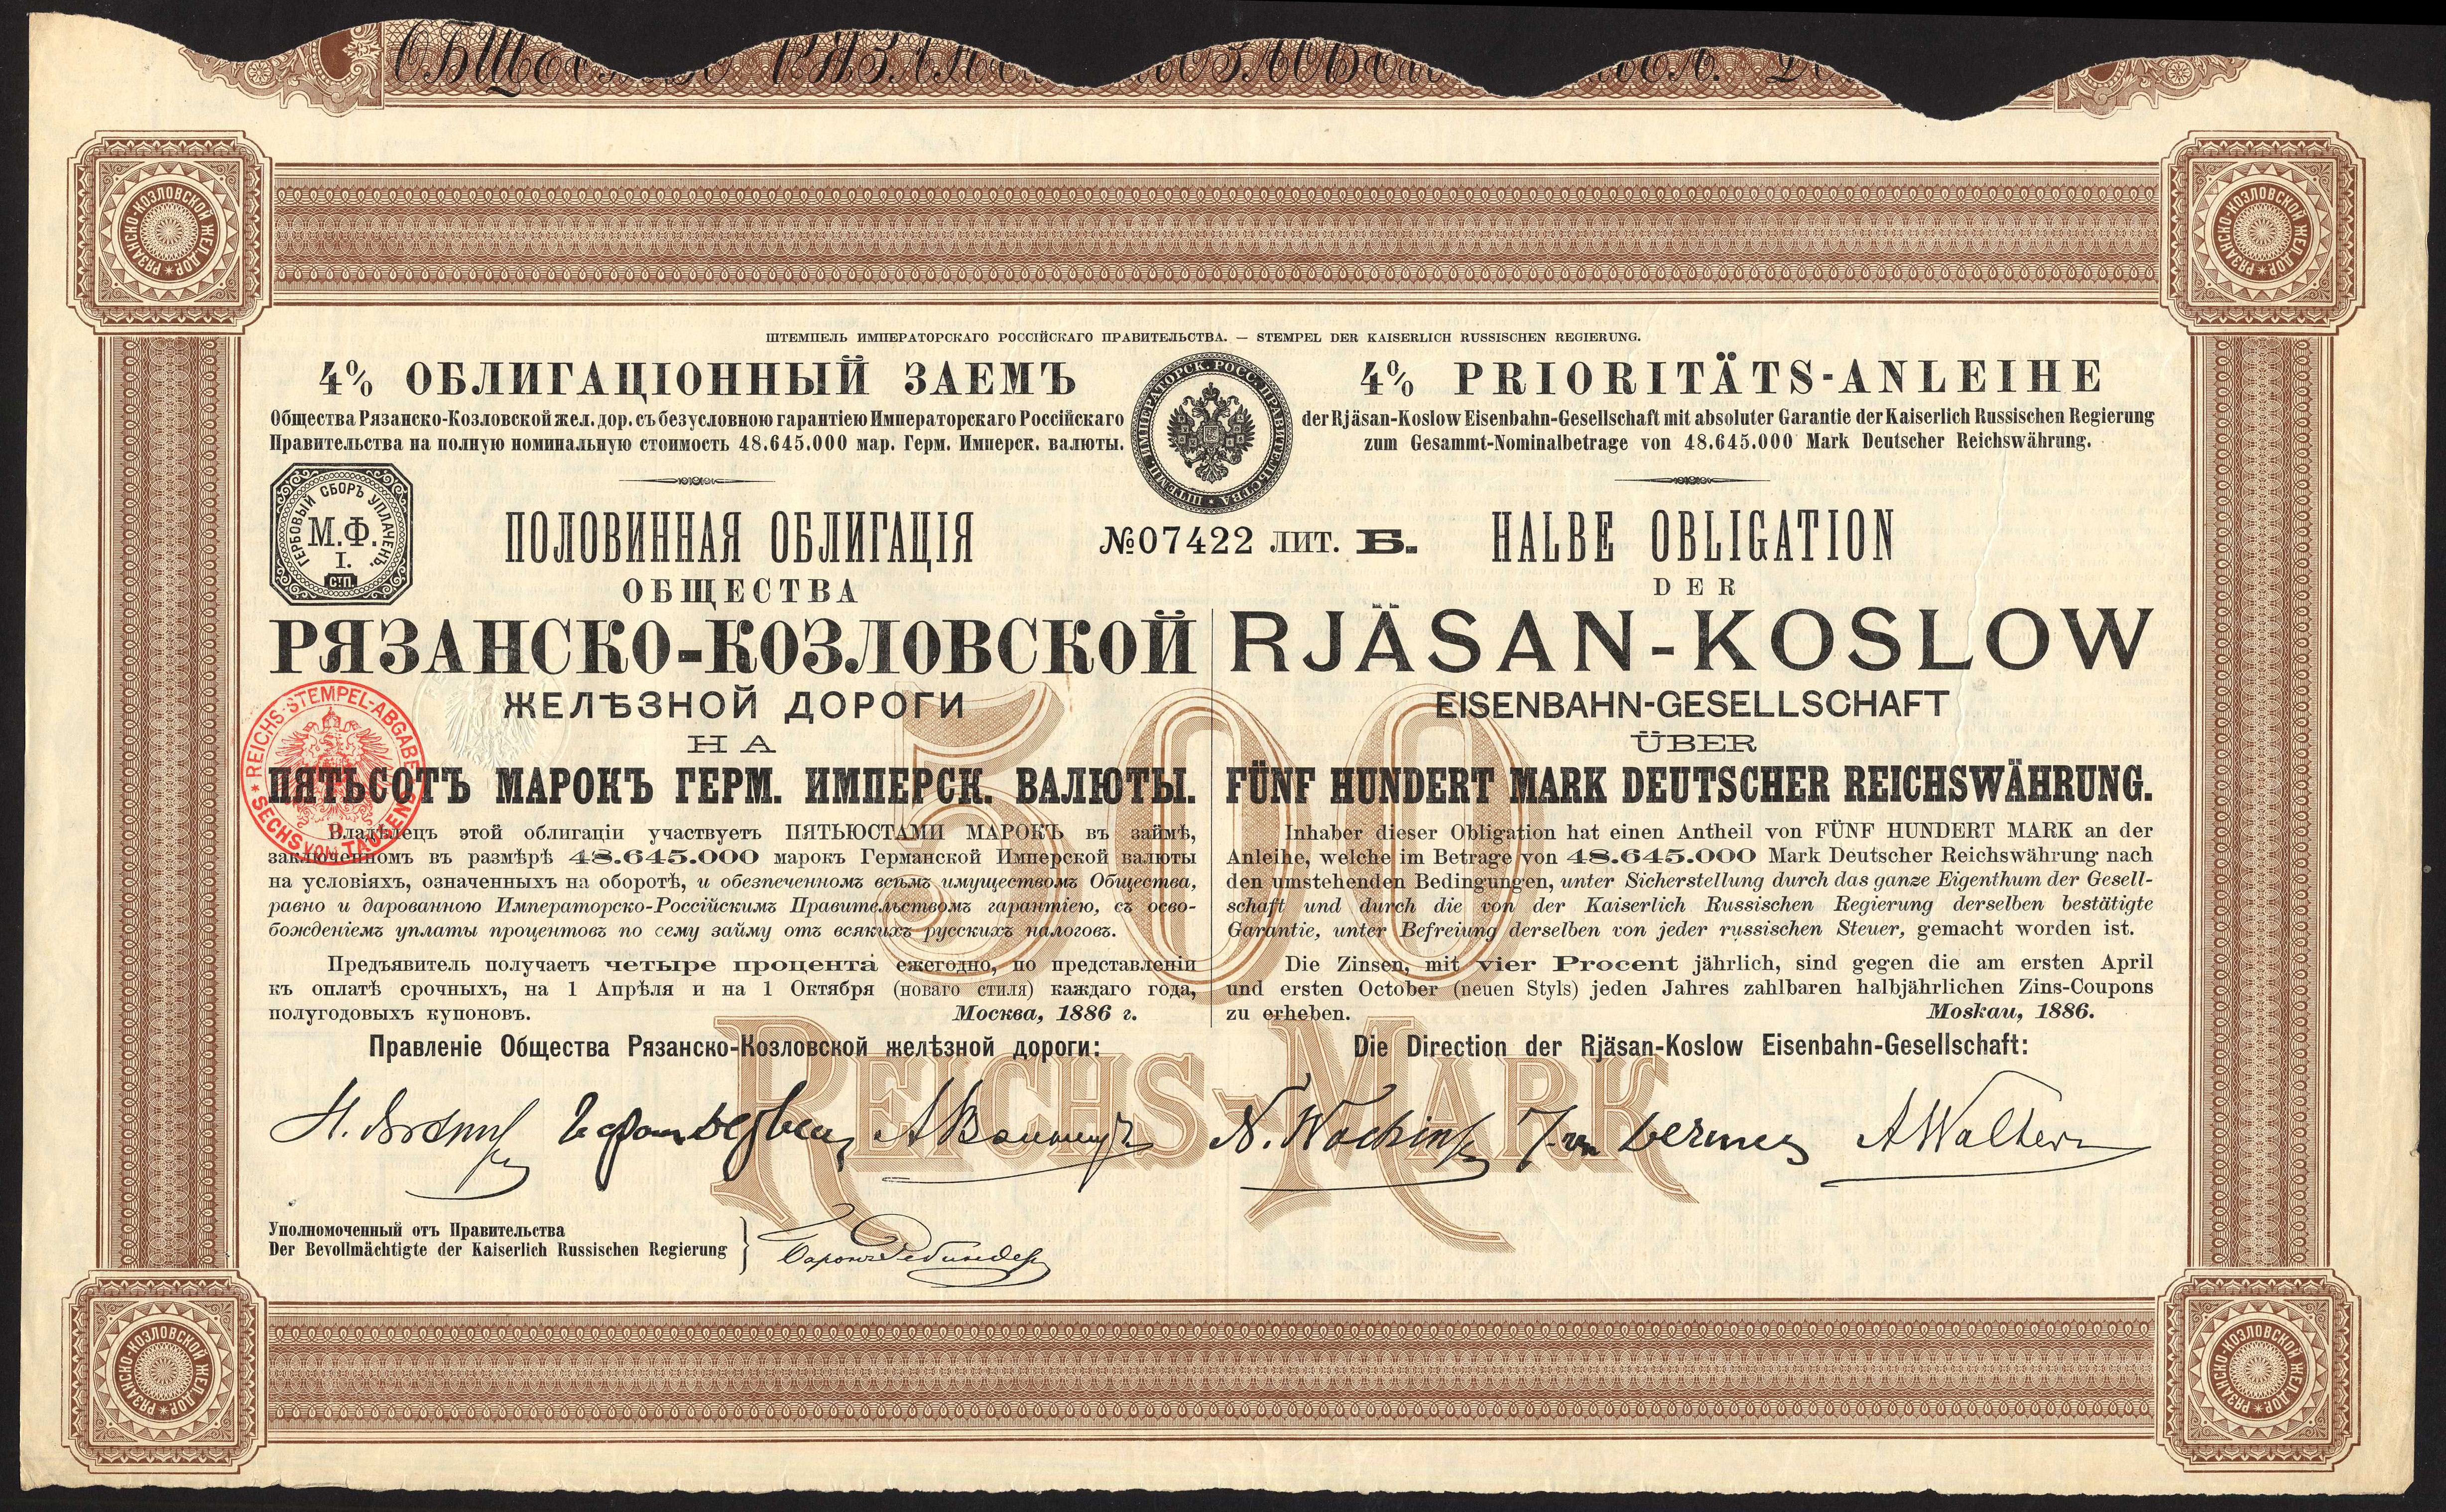 ШТЕМПЕЛЬ ИМПЕРАТОРСКАГО РОССІЙСКАГО ПРАВИТЕЛЬСТВА. — STEMPEL DER KAISERLICH RUSSISCHEN REGIERUNG.
4% ОБЛИГАЦІОННЫЙ ЗАЕМЪ
Общества Рязанско-Козловской жел. дор. съ безусловною гарантіею Императорскаго Россійскаго
Правительства на полную номинальную стоимость 48.645.000 мар. Герм. Имперск. валюты.
ШТЕМП. ИМПЕРАТОРСК. РОСС. ПРАВИТЕЛЬСТВА
4% PRIORITÄTS-ANLEIHE
der Rjäsan-Koslow Eisenbahn-Gesellschaft mit absoluter Garantie der Kaiserlich Russischen Regierung
zum Gesammt-Nominalbetrage von 48.645.000 Mark Deutscher Reichswährung.
ГЕРБОВЫЙ СБОРЪ УПЛАЧЕНЪ.
М.Ф.
I.
СТП.
ПОЛОВИННАЯ ОБЛИГАЦІЯ
№07422 ЛИТ. Б.
HALBE OBLIGATION
ОБЩЕСТВА
РЯЗАНСКО-КОЗЛОВСКОЙ
ЖЕЛѢЗНОЙ ДОРОГИ
НА
ПЯТЬСОТЪ МАРОКЪ ГЕРМ. ИМПЕРСК. ВАЛЮТЫ.
Владѣлецъ этой облигаціи участвуетъ ПЯТЬЮСТАМИ МАРОКЪ въ займѣ,
заключенномъ въ размѣрѣ 48.645.000 марокъ Германской Имперской валюты
на условіяхъ, означенныхъ на оборотѣ, и обезпеченномъ всѣмъ имуществомъ Общества,
равно и дарованною Императорско-Россійскимъ Правительствомъ гарантіею, съ осво-
божденіемъ уплаты процентовъ по сему займу отъ всякихъ русскихъ налоговъ.
Предъявитель получаетъ четыре процента ежегодно, по представленіи
къ оплатѣ срочныхъ, на 1 Апрѣля и на 1 Октября (новаго стиля) каждаго года,
полугодовыхъ купоновъ. Москва, 1886 г.
Правленіе Общества Рязанско-Козловской желѣзной дороги:
DER
RJÄSAN-KOSLOW
EISENBAHN-GESELLSCHAFT
ÜBER
FÜNF HUNDERT MARK DEUTSCHER REICHSWÄHRUNG.
Inhaber dieser Obligation hat einen Antheil von FÜNF HUNDERT MARK an der
Anleihe, welche im Betrage von 48.645.000 Mark Deutscher Reichswährung nach
den umstehenden Bedingungen, unter Sicherstellung durch das ganze Eigenthum der Gesell-
schaft und durch die von der Kaiserlich Russischen Regierung derselben bestätigte
Garantie, unter Befreiung derselben von jeder russischen Steuer, gemacht worden ist.
Die Zinsen, mit vier Procent jährlich, sind gegen die am ersten April
und ersten October (neuen Styls) jeden Jahres zahlbaren halbjährlichen Zins-Coupons
zu erheben. Moskau, 1886.
Die Direction der Rjäsan-Koslow Eisenbahn-Gesellschaft:
500
REICHS-MARK
REICHS-STEMPEL-ABGABE
SECHS VOM TAUSEND
A Walther
Уполномоченный отъ Правительства
Der Bevollmächtigte der Kaiserlich Russischen Regierung
РЯЗАНСКО-КОЗЛОВСКОЙ ЖЕЛ. ДОР.
РЯЗАНСКО-КОЗЛОВСКОЙ ЖЕЛ. ДОР.
РЯЗАНСКО-КОЗЛОВСКОЙ ЖЕЛ. ДОР.
РЯЗАНСКО-КОЗЛОВСКОЙ ЖЕЛ. ДОР.